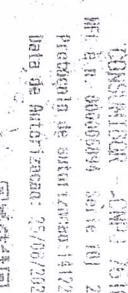 CONSUMIDOR - CNPJ 75
NFC-e n. 000006494 Serie 701 2
Protocolo de autorizacao 14122
Data de Autorizacao 25/08/202